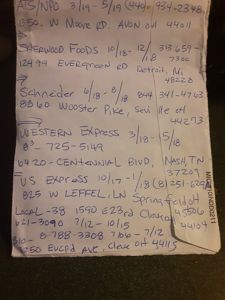 ATS/NPO 3/19 - 5/19 (440) - 934-2348
W Moore RD. AVON OH 44011
SHERWOOD FOODS 10/18 - 12/18 313 659-7300
12499 EVERGREEN RD Detroit, Mi 48228
Schneider 6/18 - 8/18 844 341-4763
8860 Wooster Pike, Seville OH 44273
WESTERN EXPRESS 3/18 - 5/18
725-5149
6420 - CENTENNIAL BLVD, NASH, TN 37209
US EXPRESS 10/17 - 1/18 (8) 251-629
825 W LEFFEL, LN Springfield OH 45506
LOCAL - 38 1590 E 23rd Cleveland 44104
621-3090 7/12 - 10/15
8-788-3308 7/06 - 7/12
Euclid AVE, Cleve OH 44115